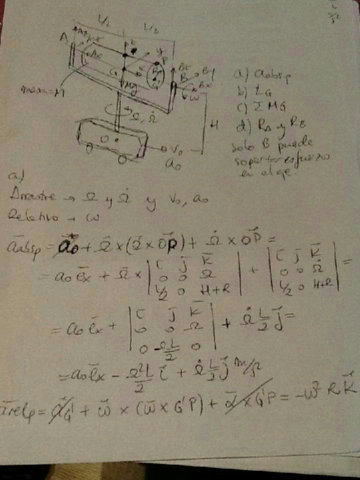 L/2 L/2
A
Mg
masa=M
H
C
Ω, Ω̇
O
v₀
a₀
a) a abs p
b) L_G
c) Σ M_G
d) R_A y R_B
solo B puede
soportar esfuerzo
en el eje.
a)
Arrastre → Ω y Ω̇ y v₀, a₀
Relativo → ω
a arrs p = a₀ + Ω × (Ω × OP) + Ω̇ × OP =
= a₀ e̅x + Ω × | i j k ; 0 0 Ω ; L/2 0 H+R | + | i j k ; 0 0 Ω̇ ; L/2 0 H+R | =
= a₀ e̅x + | i j k ; 0 0 Ω ; 0 ΩL/2 0 | + Ω̇ L/2 j =
= a₀ e̅x - Ω² L/2 i + Ω̇ L/2 j m/s²
a rel p = a G' + ω × (ω × G'P) + α × G'P = -ω² R K